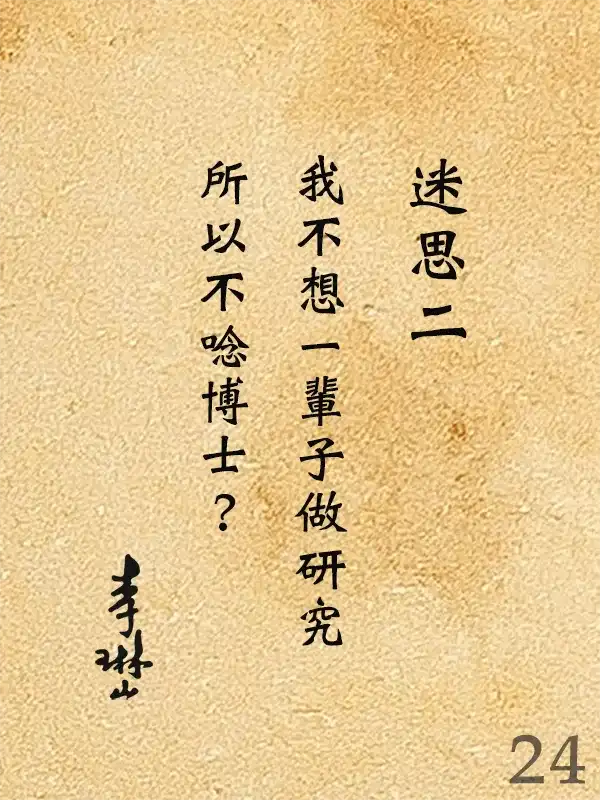 迷思二
我不想一輩子做研究
所以不唸博士？
李琳山
24